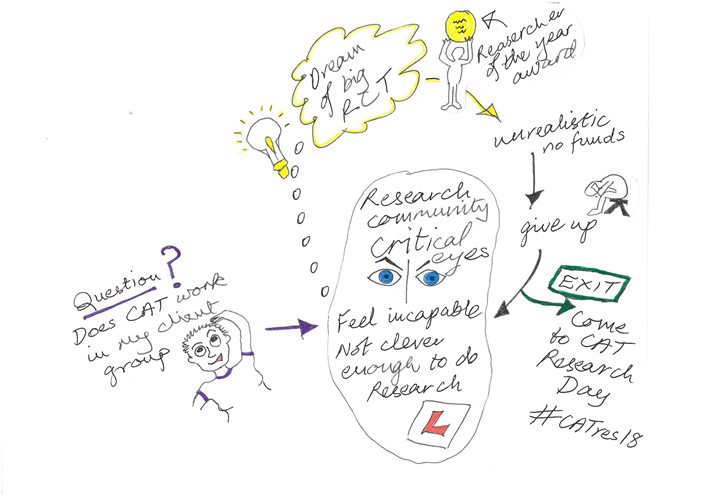 Question?
Does CAT work
in my client
group
Research
community
Critical
eyes
Feel incapable
Not clever
enough to do
Research
L
Dream
of big
RCT
Reasercher
of the year
award
unrealistic
no funds
give up
EXIT
Come
to CAT
Research
Day
#CATres18